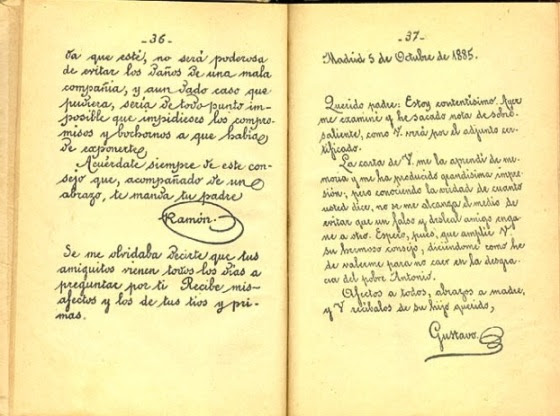 -36-
da que esté, no será poderosa
de evitar los daños de una mala
compañia, y aun dado caso que
pudiera, seria de todo punto im-
posible que impidieses los compro-
misos y bochornos a que habia
de exponerte.
Acuérdate siempre de este con-
sejo que, acompañado de un
abrazo, te manda tu padre
Ramón.
Se me olvidaba decirte que tus
amiguitos vienen todos los dias a
preguntar por ti Recibe mis
afectos y los de tus tios y pri-
mas.
-37-
Madrid 5 de Octubre de 1885.
Querido padre: Estoy contentísimo. Ayer
me examiné y he sacado nota de sobre-
saliente, como V. verá por el adjunto cer-
tificado.
La carta de V. me la aprendí de me-
moria y me ha producido grandisima impre-
sión; pero conociendo la verdad de cuanto
usted dice, no se me alcanza el medio de
evitar que un falso y desleal amigo enga-
ñe a otro. Espero, pues, que amplíe V.
su hermoso consejo, diciéndome como he
de valerme para no caer en la desgra-
cia del pobre Antonio.
Afectos a todos, abrazos a madre,
y V recíbalos de su hijo querido,
Gustavo.